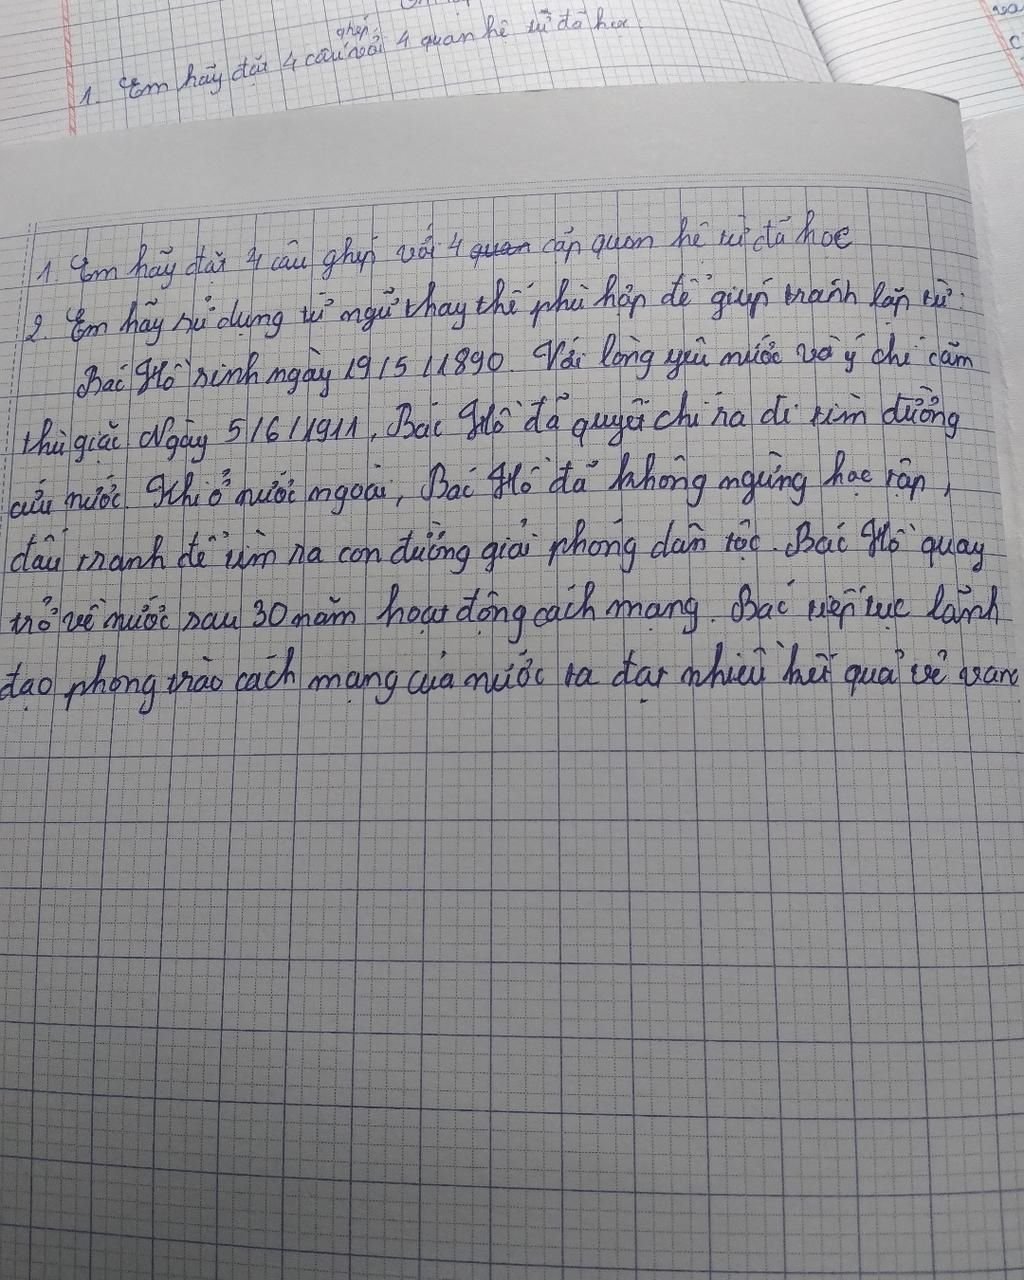 1. Em hãy đặt 4 câu ghép với 4 quan hệ từ đã học
1. Em hãy đặt 4 câu ghép với 4 quan cặp quan hệ từ đã học
2. Em hãy sử dụng từ ngữ thay thế phù hợp để giúp tránh lặp từ.
Bác Hồ sinh ngày 19/5/1890. Với lòng yêu nước và ý chí căm
thù giặc Ngày 5/6/1911, Bác Hồ đã quyết chí ra đi tìm đường
cứu nước. Khi ở nước ngoài, Bác Hồ đã không ngừng học tập,
đấu tranh để tìm ra con đường giải phóng dân tộc. Bác Hồ quay
trở về nước sau 30 năm hoạt động cách mạng. Bác tiếp tục lãnh
đạo phong trào cách mạng của nước ta đạt nhiều kết quả vẻ vang